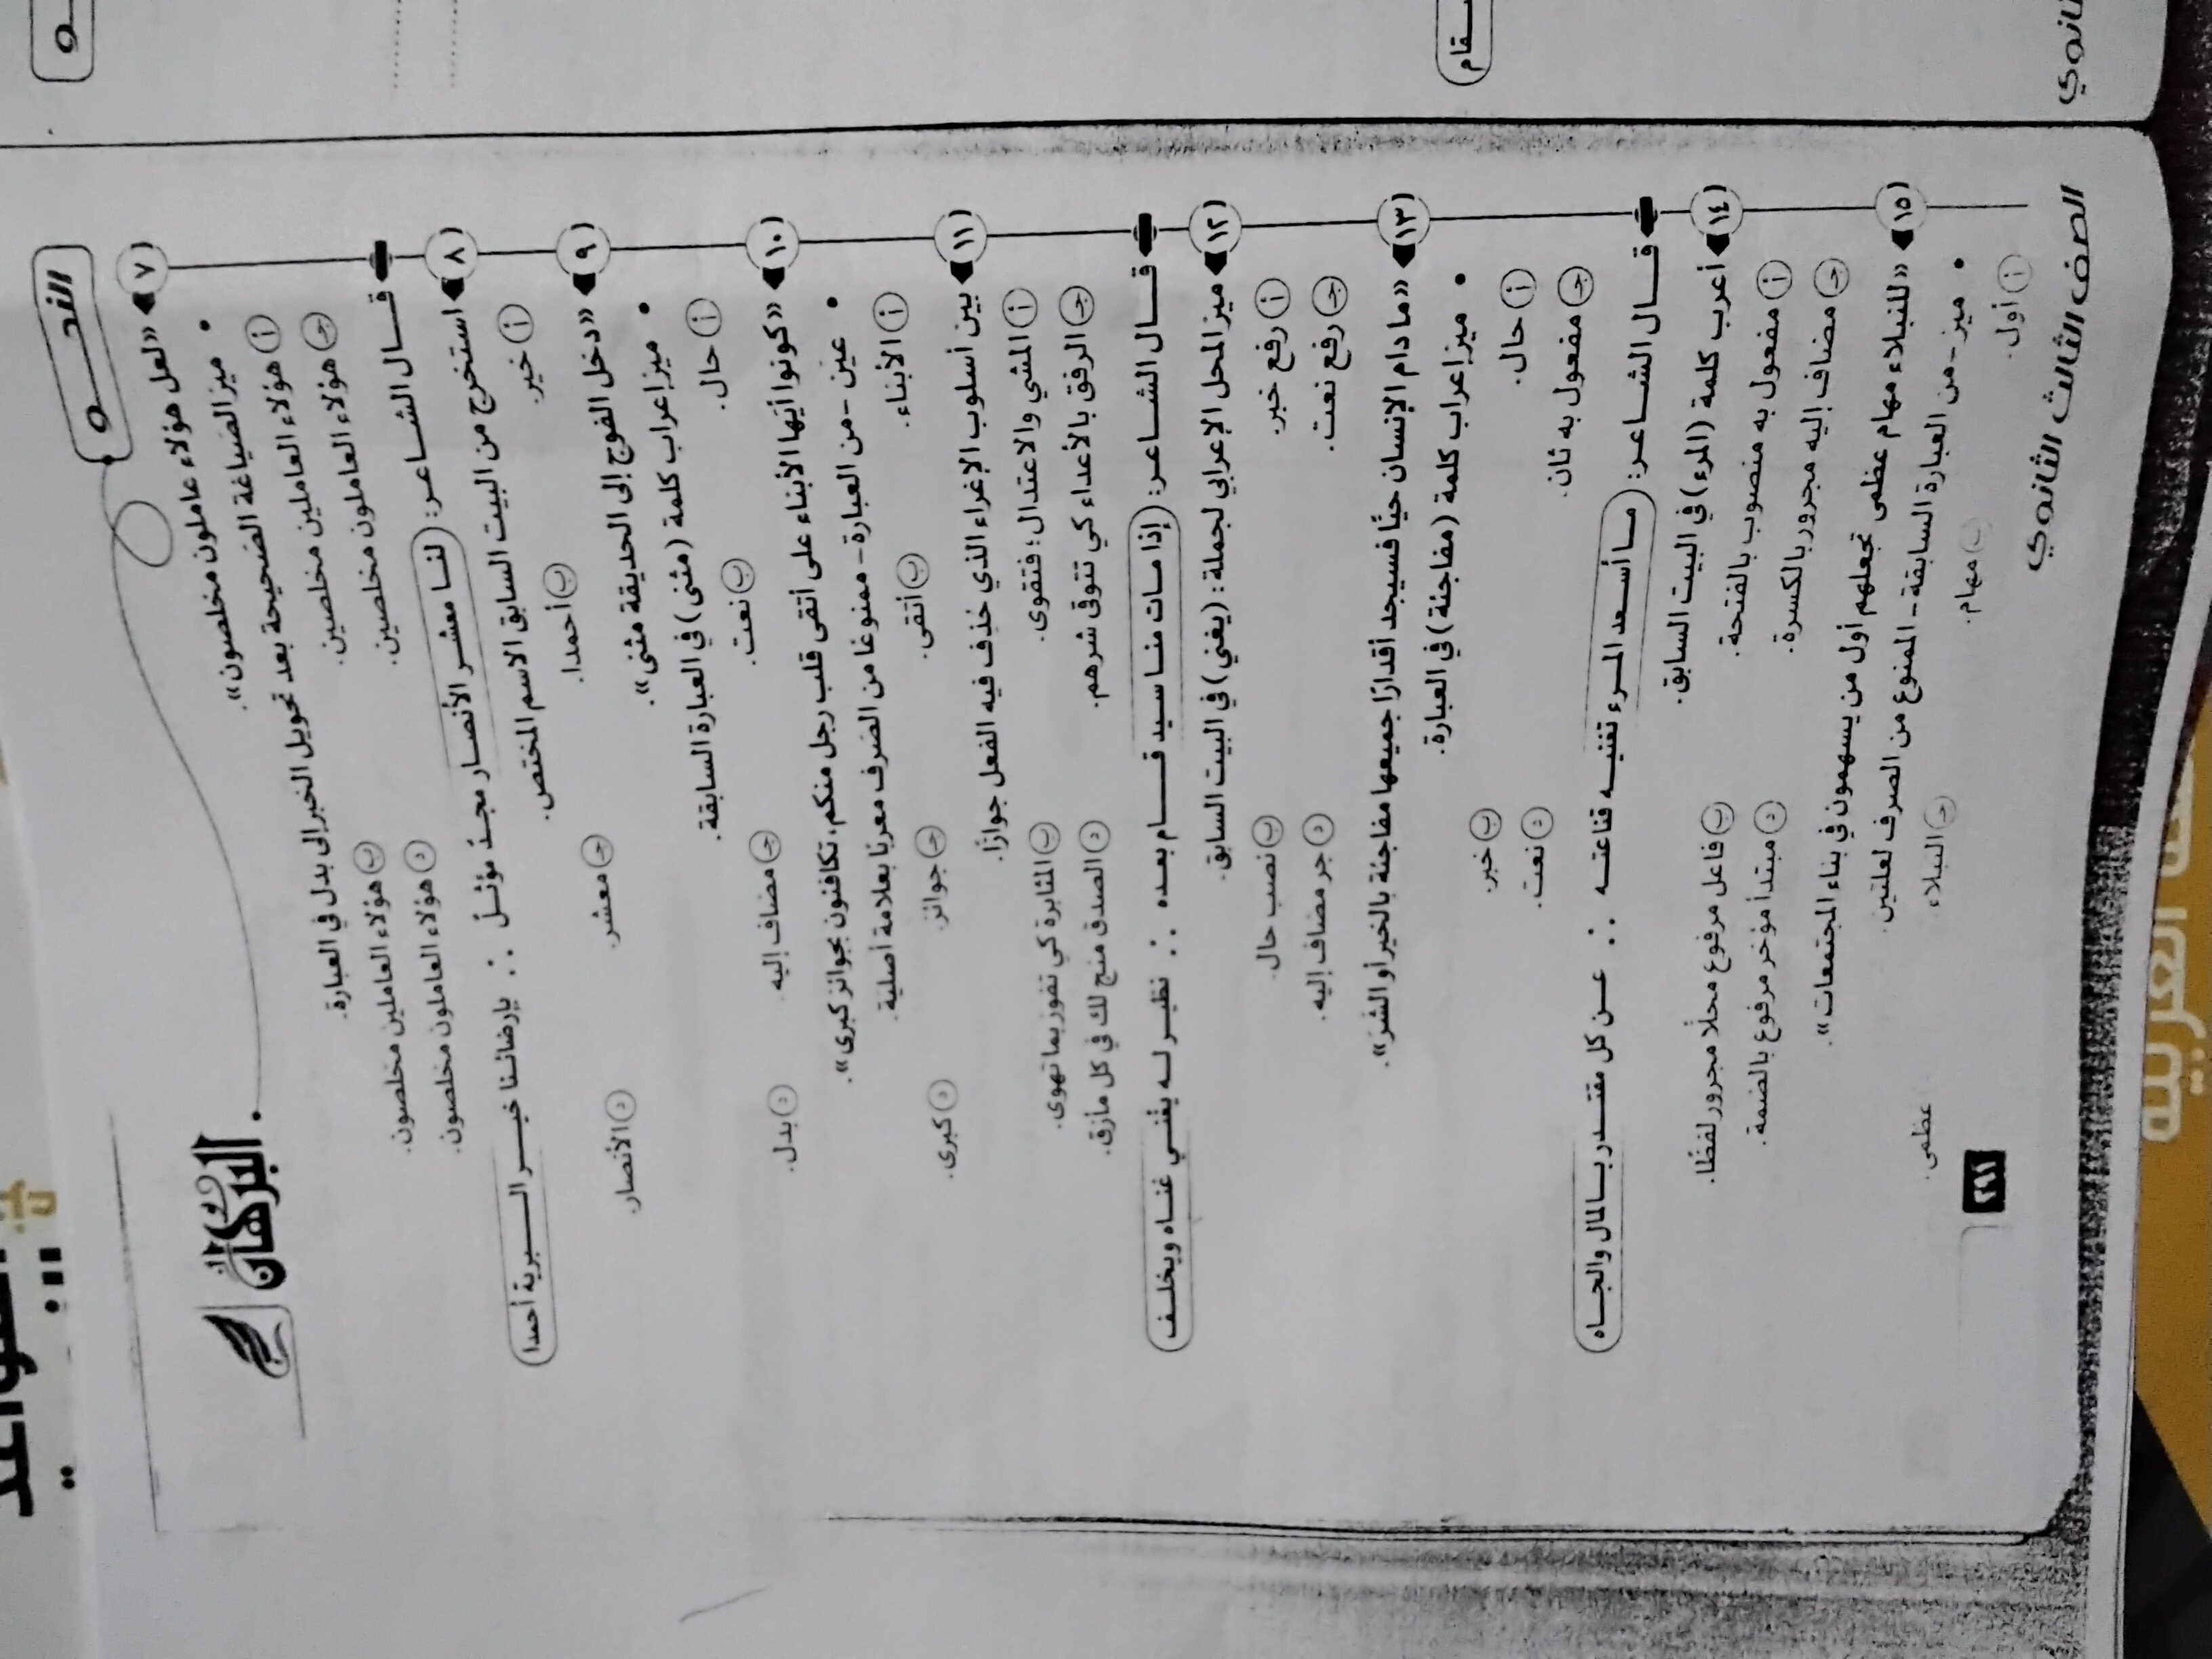 النحـــو
البرهان
٧ «لعل هؤلاء عاملون مخلصون».
• ميز الصياغة الصحيحة بعد تحويل الخبر إلى بدل في العبارة.
أ هؤلاء العاملين مخلصون.
ب هؤلاء العاملين مخلصون.
ج هؤلاء العاملين مخلصين.
د هؤلاء العاملون مخلصون.
هؤلاء العاملون مخلصين.
قـــال الشـــاعـر: (لنـا معشـر الأنصـار مجـدٌ مؤثـلٌ ∴ بإرضائـنا خـيـر الـــبرية أحمدا)
٨ استخرج من البيت السابق الاسم المختص.
أ خير.
ب أحمدا.
ج معشر.
د الأنصار.
٩ «دخل الفوج إلى الحديقة مثنى».
• ميز إعراب كلمة (مثنى) في العبارة السابقة.
أ حال.
ب نعت.
ج مضاف إليه.
د بدل.
١٠ «كونوا أيها الأبناء على أتقى قلب رجل منكم، تكافئون بجوائز كبرى».
• عين - من العبارة - ممنوعًا من الصرف معربًا بعلامة أصلية.
أ الأبناء.
ب أتقى.
ج جوائز.
د كبرى.
١١ بين أسلوب الإغراء الذي حُذف فيه الفعل جوازًا.
أ المشي والاعتدال؛ فتقوى.
ب المثابرة كي تفوز بما تهوى.
ج الرفق بالأعداء كي تتوقى شرهم.
د الصدق منج لك في كل مأزق.
قـــال الشـــاعـر: (إذا مـات منـا سـيد قـــام بعـده ∴ نظيـر لـه يغـني غنـاه ويخلـف)
١٢ ميز المحل الإعرابي لجملة: (يغني) في البيت السابق.
أ رفع خبر.
ب نصب حال.
ج رفع نعت.
د جر مضاف إليه.
١٣ «ما دام الإنسان حيًّا فسيجد أقدارًا جميعها مفاجئة بالخير أو الشر».
• ميز إعراب كلمة (مفاجئة) في العبارة.
أ حال.
ب خبر.
ج مفعول به ثان.
د نعت.
قـــال الشـــاعـر: (مـا أسـعد المـرء تغنيـه قناعتـه ∴ عـن كل مقتـدر بـالمال والجـاه)
١٤ أعرب كلمة (المرء) في البيت السابق.
أ مفعول به منصوب بالفتحة.
ب فاعل مرفوع محلًا مجرور لفظًا.
ج مضاف إليه مجرور بالكسرة.
د مبتدأ مؤخر مرفوع بالضمة.
١٥ «للنبلاء مهام عظمى تجعلهم أول من يسهمون في بناء المجتمعات».
• ميز - من العبارة السابقة - الممنوع من الصرف لعلتين.
أ أول.
ب مهام.
ج النبلاء.
عظمى.
الصف الثالث الثانوي